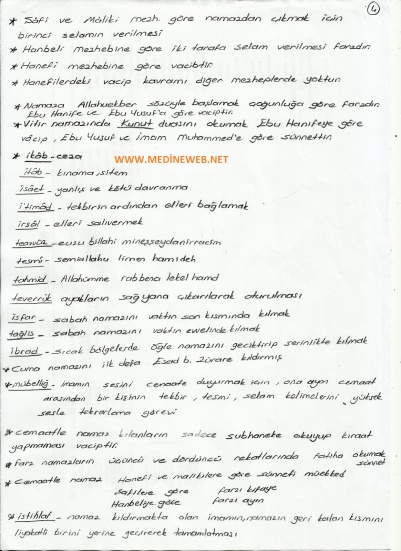 4
* Şafi ve Maliki mezh. göre namazdan çıkmak için
birinci selamın verilmesi
* Hanbeli mezhebine göre iki tarafa selam verilmesi farzdır.
* Hanefi mezhebine göre vaciptir.
* Hanefilerdeki vacip kavramı diğer mezheplerde yoktur.
* Namaza Allahuekber sözüyle başlamak çoğunluğa göre farzdır.
Ebu Hanife ve Ebu Yusuf'a göre vaciptir.
* Vitir namazında Kunut duasını okumak Ebu Hanifeye göre
vacip, Ebu Yusuf ve imam Muhammed'e göre sünnettir.
* itâb - ceza
WWW.MEDİNEWEB.NET
itâb - kınama, sitem
isâet - yanlış ve kötü davranma
itimâd - tekbirin ardından elleri bağlamak
irsâl - elleri salıvermek
teavüz - euzu billahi mineşşeydanirracim
tesmi - semiallahu limen hamideh
tahmid - Allahümme rabbena lekel hamd
teverrük ayakların sağ yana çıkarılarak oturulması
isfar - sabah namazını vaktin son kısmında kılmak
tağlis - sabah namazını vaktin evvelinde kılmak
ibrad - sıcak bölgelerde öğle namazını geciktirip serinlikte kılmak
* Cuma namazını ilk defa Esad b. Zürare kıldırmış
* mübelliğ - imamın sesini cemaate duyurmak için, ona uyan cemaat
arasından bir kişinin tekbir, tesmi, selam kelimelerini yüksek
sesle tekrarlama görevi
* cemaatle namaz kılanların sadece subhaneke okuyup kıraat
yapmaması vaciptir.
* Farz namazların üçüncü ve dördüncü rekatlarında fatiha okumak
sünnet
* Cemaatle namaz Hanefi ve malikilere göre sünneti müekked
Şafilere göre farzı kifaye
Hanbeliye göre farzı ayın
* istihlaf - namaz kıldırmakta olan imamın, namazın geri kalan kısmını
liyakatli birini yerine geçirerek tamamlatması